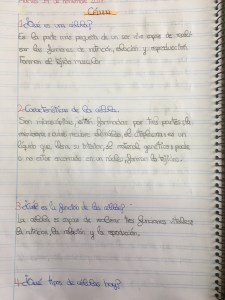 Martes 21 de diciembre 2021
Célula
1-¿Qué es una célula?
Es la parte más pequeña de un ser vivo capaz de reali-
zar las funciones de nutrición, relación y reproducción.
Forman el tejido
2-Características de las células.
Son microscópicas, están formadas por tres partes, la
membrana que la recubre, el citoplasma es un
líquido que llena su interior, el material genético puede
o no estar encerrado en un núcleo,
3-¿Cuál es la función de las células?
La célula es capaz de realizar tres funciones vitales:
la nutrición, la relación y la reproducción.
4-¿Qué tipos de células hay?